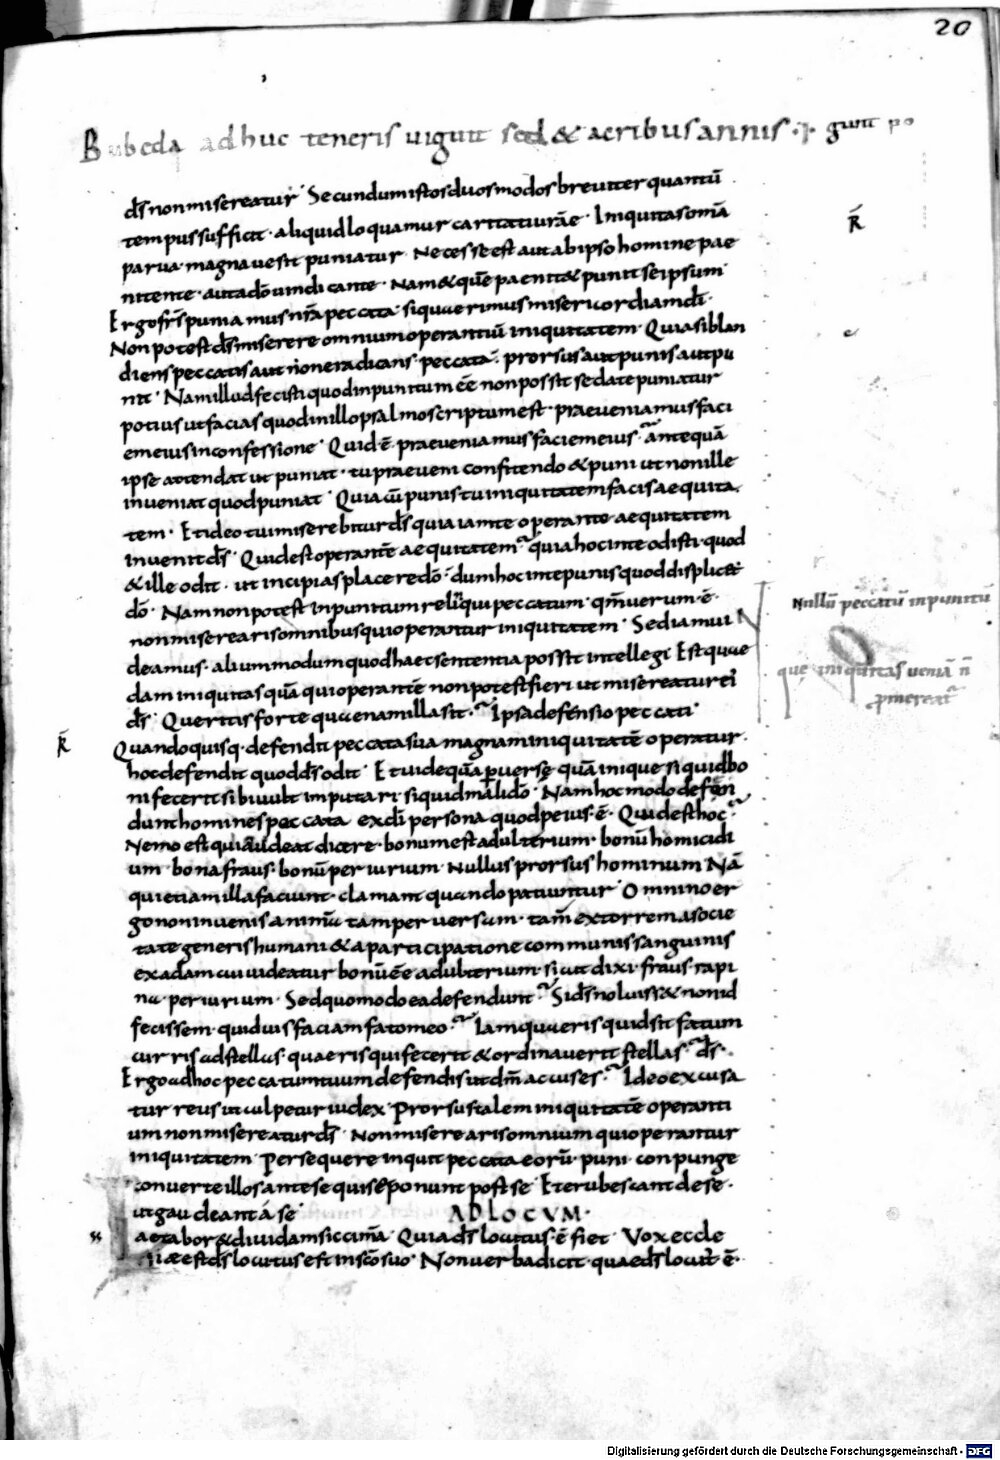 20
Bubeda adhuc teneris uigutt sed & acribus annis · gunt po
ds̄ non misereatur · Secundum istos duos modos breuiter quantū
tempus sufficit · aliquid loquamur caritati urāe · Iniquitas omīs
parua magna ue sit puniatur · Necesse est aut ab ipso homine pae
nitente · aut a dō uindicante · Nam & quē paenit& punit se ipsum ·
Ergo frs̄ puniamus nr̄a peccata · si quaerimus misericordiam dī ·
Non potest ds̄ misereri omnium operantiū iniquitatem · Quasi blan
diens peccatis aut non eradicans · peccata · prorsus aut punis aut pu
nit · Nam illud fecisti quod inpunitum eē non possit sed a te puniatur
potius ut facias quod in illo psalmo scriptum est · praeueniamus faci
em eius in confessione · Quid ē praeueniamus faciem eius · antequā
ipse attendat ut puniat · tu praeueni confitendo & puni ut non ille
inueniat quod puniat · Quia cū punis tu iniquitatem facis aequita
tem · Et ideo tui miserebitur ds̄ quia iam te operantē aequitatem
inuenit ds̄ · Quid est operantē aequitatem · quia hoc in te odisti · quod
& ille odit · ut incipias placere dō · dum hoc in te punis quod displicet
dō · Nam non potest inpunitum relinqui peccatum · qm̄ uerum ē ·
non misereatis omnibus qui operantur iniquitatem · Sed iam ui
deamus · alium modum quod haec sententia possit intellegi Est quae
dam iniquitas quā qui operantē non potest fieri ut misereatur ei
ds̄ · Queritis forte quaenam illa sit · Ipsa defensio peccati ·
Quando quisq · defendit peccata sua magnam iniquitatē operatur ·
hoc defendit quod ds̄ odit · Et uide quā peruerse quā inique si quid bo
ni fecerit sibi uult imputari · si quid mali dō · Nam hoc modo defen
dunt homines peccata ex dī persona quod peius ē · Quid est hoc ·
Nemo est qui audeat dicere · bonum est adulterium · bonū homicidi
um · bona fraus · bonū periurium · Nullus prorsus hominum Nā
qui etiam illa faciunt · clamant quando patiuntur · Omnino er
go non inuenis animū tam peruersum · tam extorrem a socie
tate generis humani & a participatione communis sanguinis
ex adam cui uideatur bonū eē adulterium · sicut dixi · fraus · rapi
na · periurium · Sed quomodo ea defendunt · Si ds̄ noluiss& non id
fecissem · quid uis faciam fato meo · Iam quaeris quid sit fatum
curris ad stellas · quaeris qui fecerit & ordinauerit stellas · ds̄ ·
Ergo ad hoc peccatum tuum defendis ut dm̄ accuses · Ideo excusa
tur reus ut culpetur iudex · Prorsus talem iniquitatē operanti
um non misereatur ds̄ · Non misereatis omnium qui operantur
iniquitatem · Persequere inquit peccata eorū · puni · conpunge
conuerte illos ante se qui se ponunt post se · Et erubescant de se ·
ut gaudeant a se · AD LOCUM ·
Laetabor & diuidam siccimā · Quia ds̄ locutus · ē fiet · Vox eccle
siae est ds̄ locutus est in sc̄o suo · Non uerba dicit · quae ds̄ locut ē ·
R̄
Nullū peccatū inpunitū
que iniquitas ueniā n̄
promereat
R̄